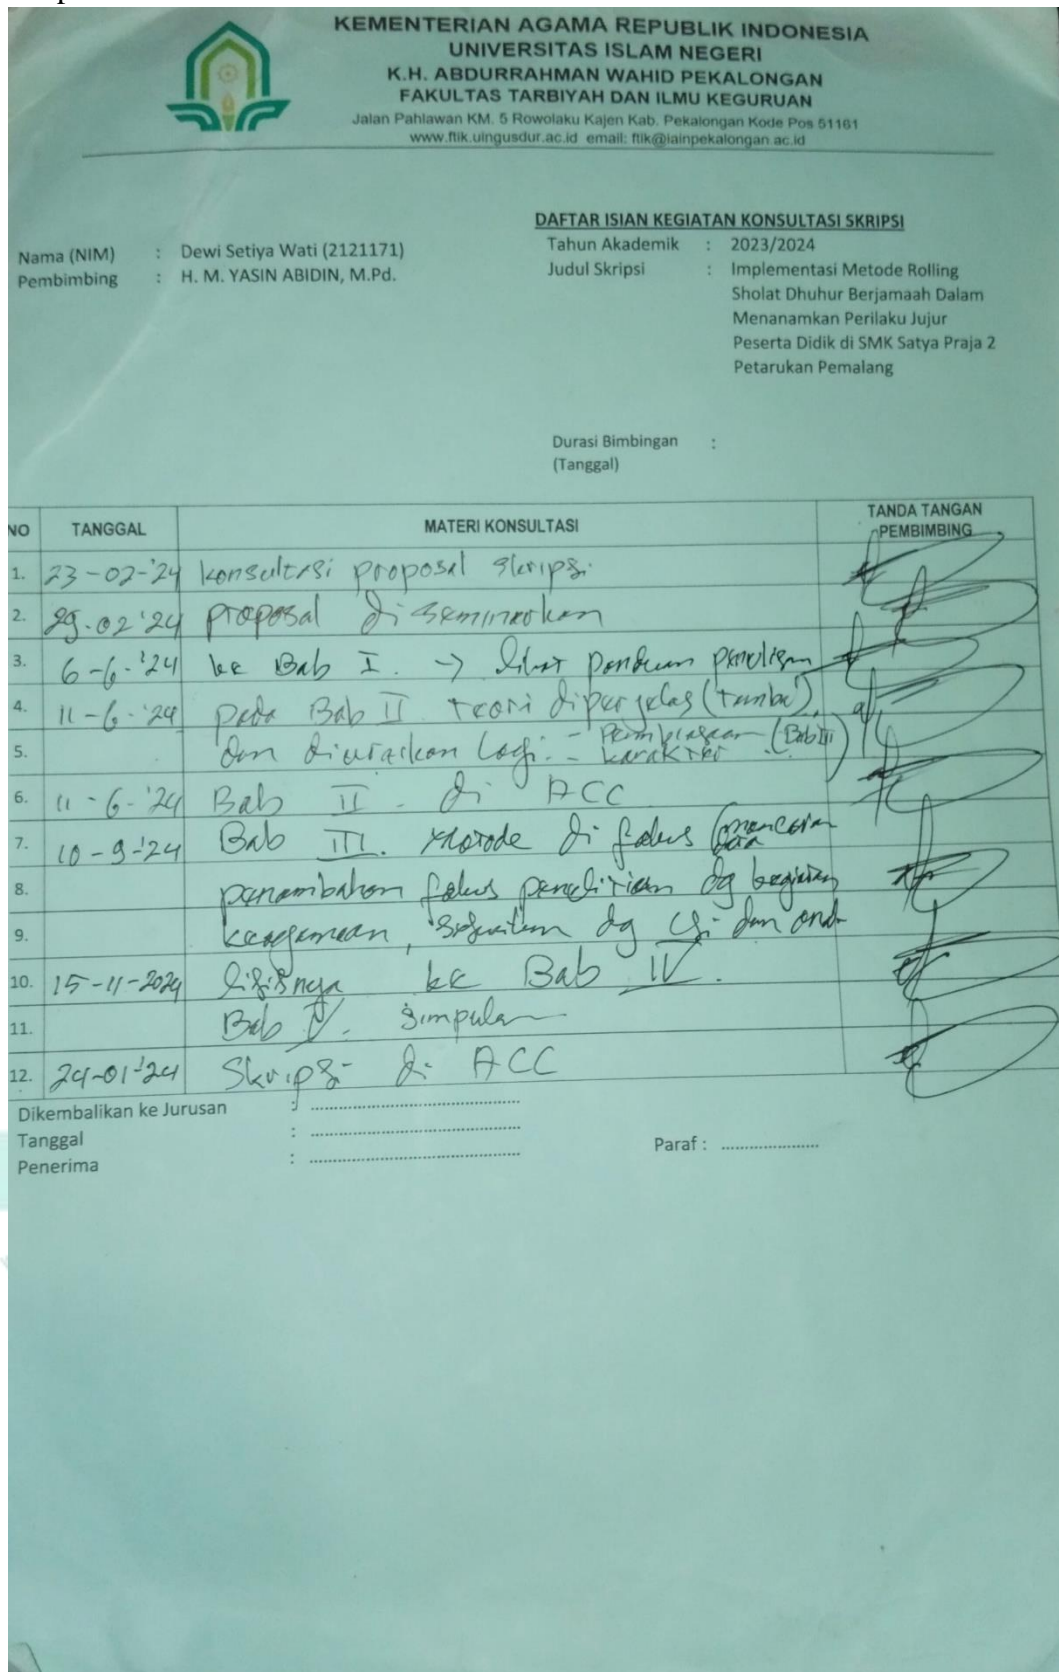 KEMENTERIAN AGAMA REPUBLIK INDONESIA
UNIVERSITAS ISLAM NEGERI
K.H. ABDURRAHMAN WAHID PEKALONGAN
FAKULTAS TARBIYAH DAN ILMU KEGURUAN
Jalan Pahlawan KM. 5 Rowolaku Kajen Kab. Pekalongan Kode Pos 51161
www.ftik.uingusdur.ac.id email: ftik@iainpekalongan.ac.id
DAFTAR ISIAN KEGIATAN KONSULTASI SKRIPSI
Nama (NIM) : Dewi Setiya Wati (2121171)
Pembimbing : H. M. YASIN ABIDIN, M.Pd.
Tahun Akademik : 2023/2024
Judul Skripsi : Implementasi Metode Rolling
Sholat Dhuhur Berjamaah Dalam
Menanamkan Perilaku Jujur
Peserta Didik di SMK Satya Praja 2
Petarukan Pemalang
Durasi Bimbingan :
(Tanggal)
NO TANGGAL MATERI KONSULTASI TANDA TANGAN PEMBIMBING
1. 23-02-'24 konsultasi proposal skripsi
2. 29-02'24 proposal di seminarkan
3. 6-6-'24 ke Bab I. → lihat panduan penulisan
4. 11-6-'24 pada Bab II teori diperjelas
5. dan diuraikan lagi - Pembiasaan (Bab II) - karakter
6. 11-6-'24 Bab II - di ACC
7. 10-9-'24 Bab III. Metode di fokus
8. penambahan fokus penelitian dg kegiatan
9. keagamaan, dg dan
10. 15-11-2024 ke Bab IV.
11. Bab V. simpulan
12. 24-01-'24 Skripsi di ACC
Dikembalikan ke Jurusan : ..........
Tanggal : ..........
Penerima : ..........
Paraf : ..........